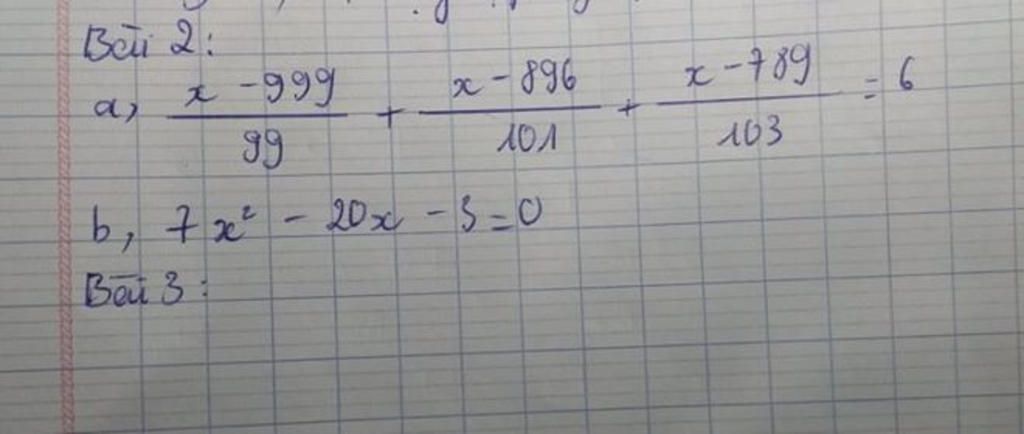 Bài 2:
a, \frac{x-999}{99} + \frac{x-896}{101} + \frac{x-789}{103} = 6
b, 7x² - 20x - 3 = 0
Bài 3: